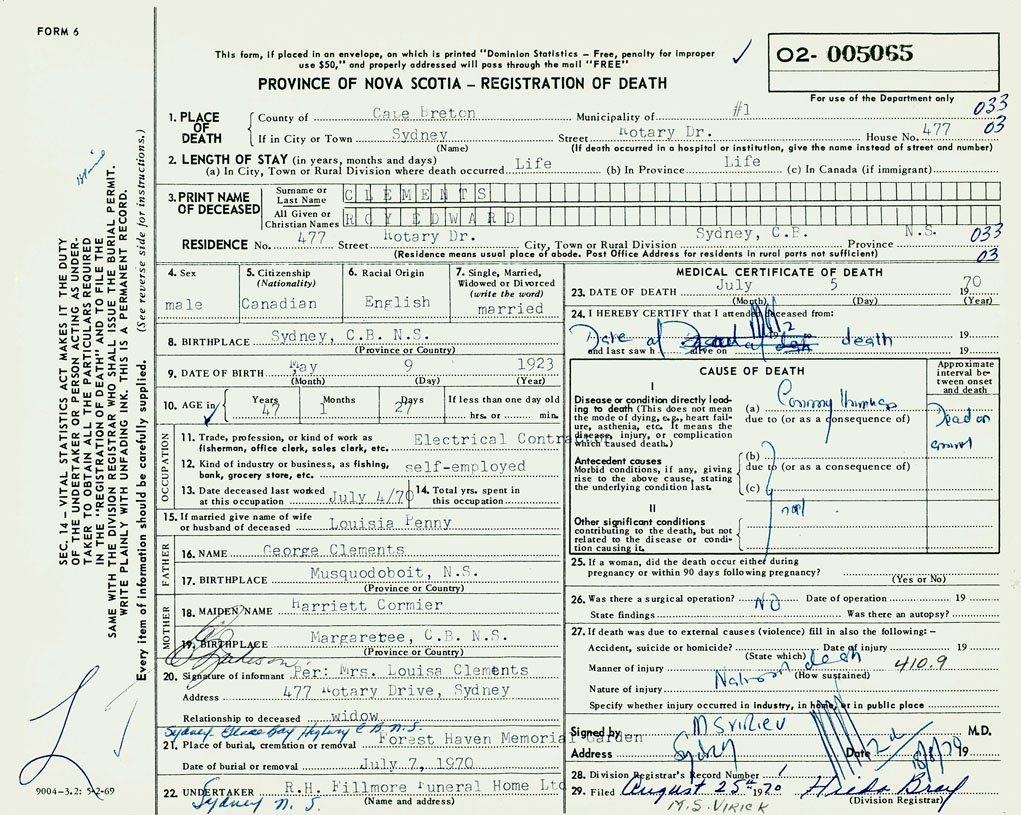 FORM 6
This form, if placed in an envelope, on which is printed "Dominion Statistics – Free, penalty for improper
use $50," and properly addressed will pass through the mail "FREE"
02- 005065
PROVINCE OF NOVA SCOTIA – REGISTRATION OF DEATH
For use of the Department only
1. PLACE OF DEATH
County of Cape Breton Municipality of #1 033
If in City or Town Sydney Street Rotary Dr. House No. 477 03
(Name) (If death occurred in a hospital or institution, give the name instead of street and number)
2. LENGTH OF STAY (in years, months and days)
(a) In City, Town or Rural Division where death occurred Life (b) In Province Life (c) In Canada (if immigrant)
3. PRINT NAME OF DECEASED
Surname or Last Name CLEMENTS
All Given or Christian Names ROY EDWARD
RESIDENCE No. 477 Street Rotary Dr. City, Town or Rural Division Sydney, C.B. Province N.S. 033
(Residence means usual place of abode. Post Office Address for residents in rural parts not sufficient) 03
4. Sex
male
5. Citizenship
(Nationality)
Canadian
6. Racial Origin
English
7. Single, Married,
Widowed or Divorced
(write the word)
married
8. BIRTHPLACE Sydney, C.B. N.S.
(Province or Country)
9. DATE OF BIRTH May 9 1923
(Month) (Day) (Year)
10. AGE in Years Months Days If less than one day old
47 1 27 hrs. or min.
OCCUPATION
11. Trade, profession, or kind of work as
fisherman, office clerk, sales clerk, etc. Electrical Contra
12. Kind of industry or business, as fishing,
bank, grocery store, etc. self-employed
13. Date deceased last worked
at this occupation July 4/70
14. Total yrs. spent in
this occupation
15. If married give name of wife
or husband of deceased Louisia Penny
FATHER
16. NAME George Clements
17. BIRTHPLACE Musquodoboit, N.S.
(Province or Country)
MOTHER
18. MAIDEN NAME Harriett Cormier
19. BIRTHPLACE Margaretee, C.B. N.S.
(Province or Country)
20. Signature of informant Per: Mrs. Louisa Clements
Address 477 Rotary Drive, Sydney
Relationship to deceased widow
Sydney Glace Bay Highway C.B. N.S.
21. Place of burial, cremation or removal Forest Haven Memorial Garden
Date of burial or removal July 7, 1970
22. UNDERTAKER R.H. Fillmore Funeral Home Ltd
(Name and address)
Sydney N.S.
MEDICAL CERTIFICATE OF DEATH
23. DATE OF DEATH July 5 1970
(Month) (Day) (Year)
24. I HEREBY CERTIFY that I attended deceased from:
Date of death 19
and last saw h alive on 19
CAUSE OF DEATH
Approximate
interval be-
tween onset
and death
I
Disease or condition directly lead-
ing to death (This does not
mean the mode of dying, e.g., heart fail-
ure, asthenia, etc. It means the
disease, injury, or complication
which caused death.)
(a)
due to (or as a consequence of)
Dead on
Antecedent causes
Morbid conditions, if any, giving
rise to the above cause, stating
the underlying condition last.
(b)
due to (or as a consequence of)
(c)
II
Other significant conditions
contributing to the death, but not
related to the disease or condi-
tion causing it.
25. If a woman, did the death occur either during
pregnancy or within 90 days following pregnancy?
(Yes or No)
26. Was there a surgical operation? NO Date of operation 19
State findings Was there an autopsy?
27. If death was due to external causes (violence) fill in also the following: –
Accident, suicide or homicide? Date of injury 19
(State which)
Manner of injury Natural death 410.9
(How sustained)
Nature of injury
Specify whether injury occurred in industry, in home, or in public place
Signed by M.D.
Address Sydney Date 19
28. Division Registrar's Record Number
29. Filed August 25th 1970 Hilda Bray
(Division Registrar)
M.S. VIRICK
SEC. 14 – VITAL STATISTICS ACT MAKES IT THE DUTY
OF THE UNDERTAKER OR PERSON ACTING AS UNDER-
TAKER TO OBTAIN ALL THE PARTICULARS REQUIRED
IN THE "REGISTRATION OF DEATH" AND TO FILE THE
SAME WITH THE DIVISION REGISTRAR WHO SHALL ISSUE THE BURIAL PERMIT.
WRITE PLAINLY WITH UNFADING INK. THIS IS A PERMANENT RECORD.
Every item of information should be carefully supplied. (See reverse side for instructions.)
9004–3.2: 5-2-69